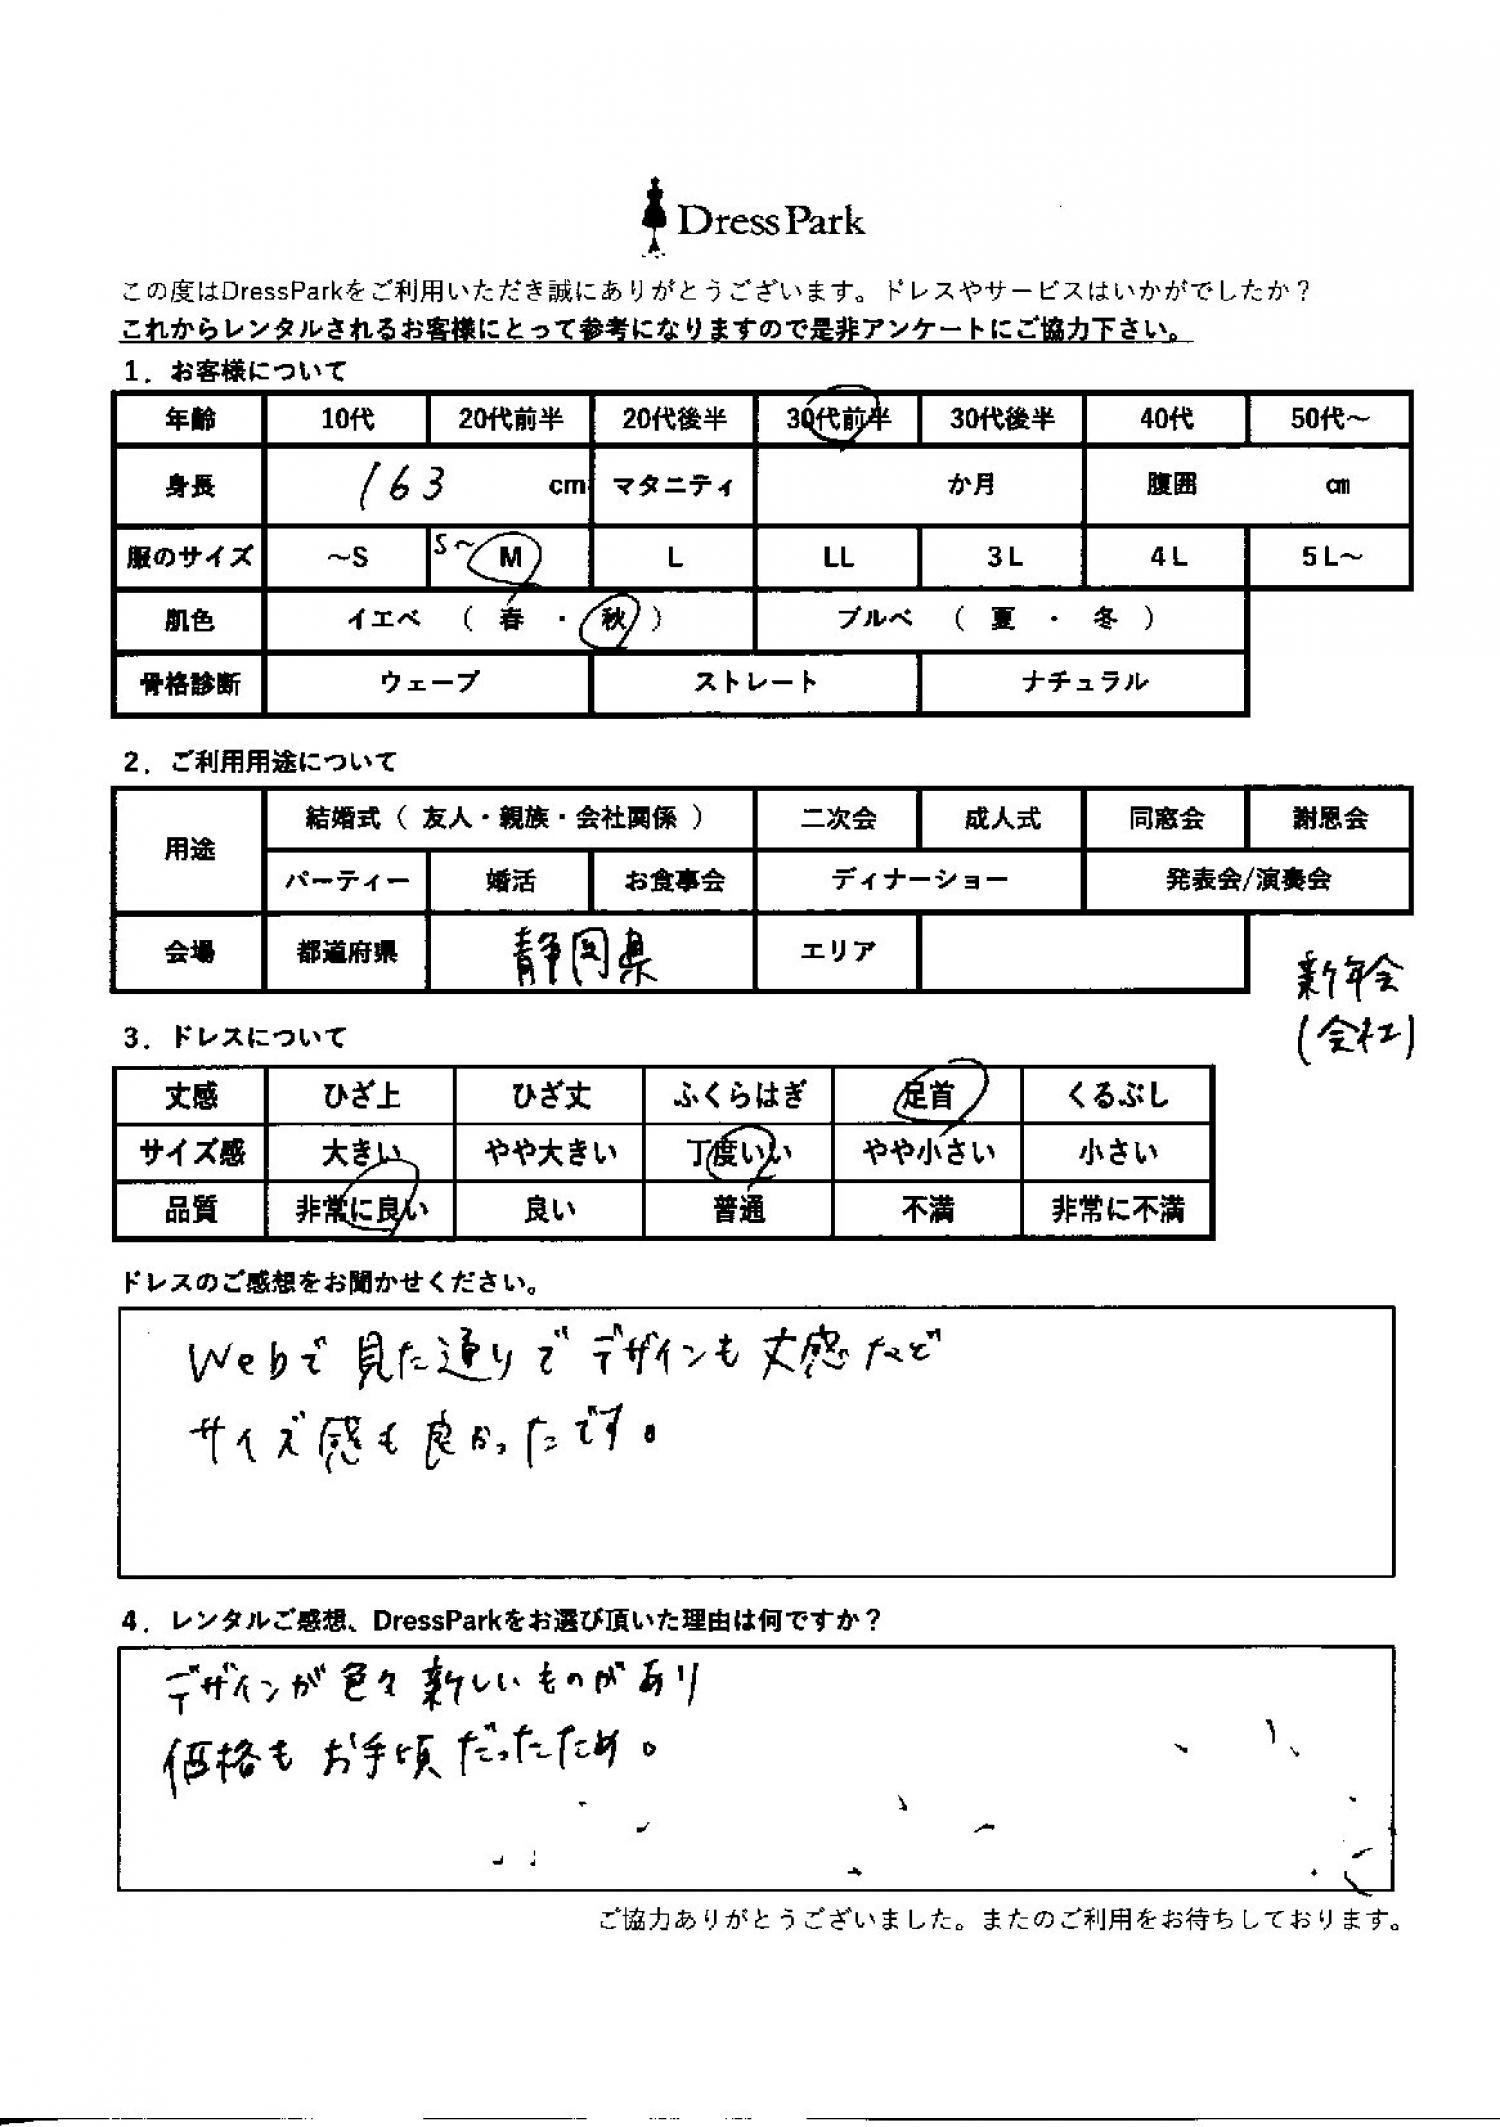 DressPark
この度はDressParkをご利用いただき誠にありがとうございます。ドレスやサービスはいかがでしたか？
これからレンタルされるお客様にとって参考になりますので是非アンケートにご協力下さい。
1．お客様について
年齢 10代 20代前半 20代後半 30代前半 30代後半 40代 50代～
身長 163 cm マタニティ か月 腹囲 ㎝
服のサイズ ～S S～ M L LL 3L 4L 5L～
肌色 イエベ （ 春 ・ 秋 ） ブルベ （ 夏 ・ 冬 ）
骨格診断 ウェーブ ストレート ナチュラル
2．ご利用用途について
用途 結婚式（ 友人・親族・会社関係 ） 二次会 成人式 同窓会 謝恩会
パーティー 婚活 お食事会 ディナーショー 発表会/演奏会
会場 都道府県 静岡県 エリア
新年会
(会社)
3．ドレスについて
丈感 ひざ上 ひざ丈 ふくらはぎ 足首 くるぶし
サイズ感 大きい やや大きい 丁度いい やや小さい 小さい
品質 非常に良い 良い 普通 不満 非常に不満
ドレスのご感想をお聞かせください。
Webで見た通りでデザインも丈感など
サイズ感も良かったです。
4．レンタルご感想、DressParkをお選び頂いた理由は何ですか？
デザインが色々新しいものがあり
価格もお手頃だったため。
ご協力ありがとうございました。またのご利用をお待ちしております。